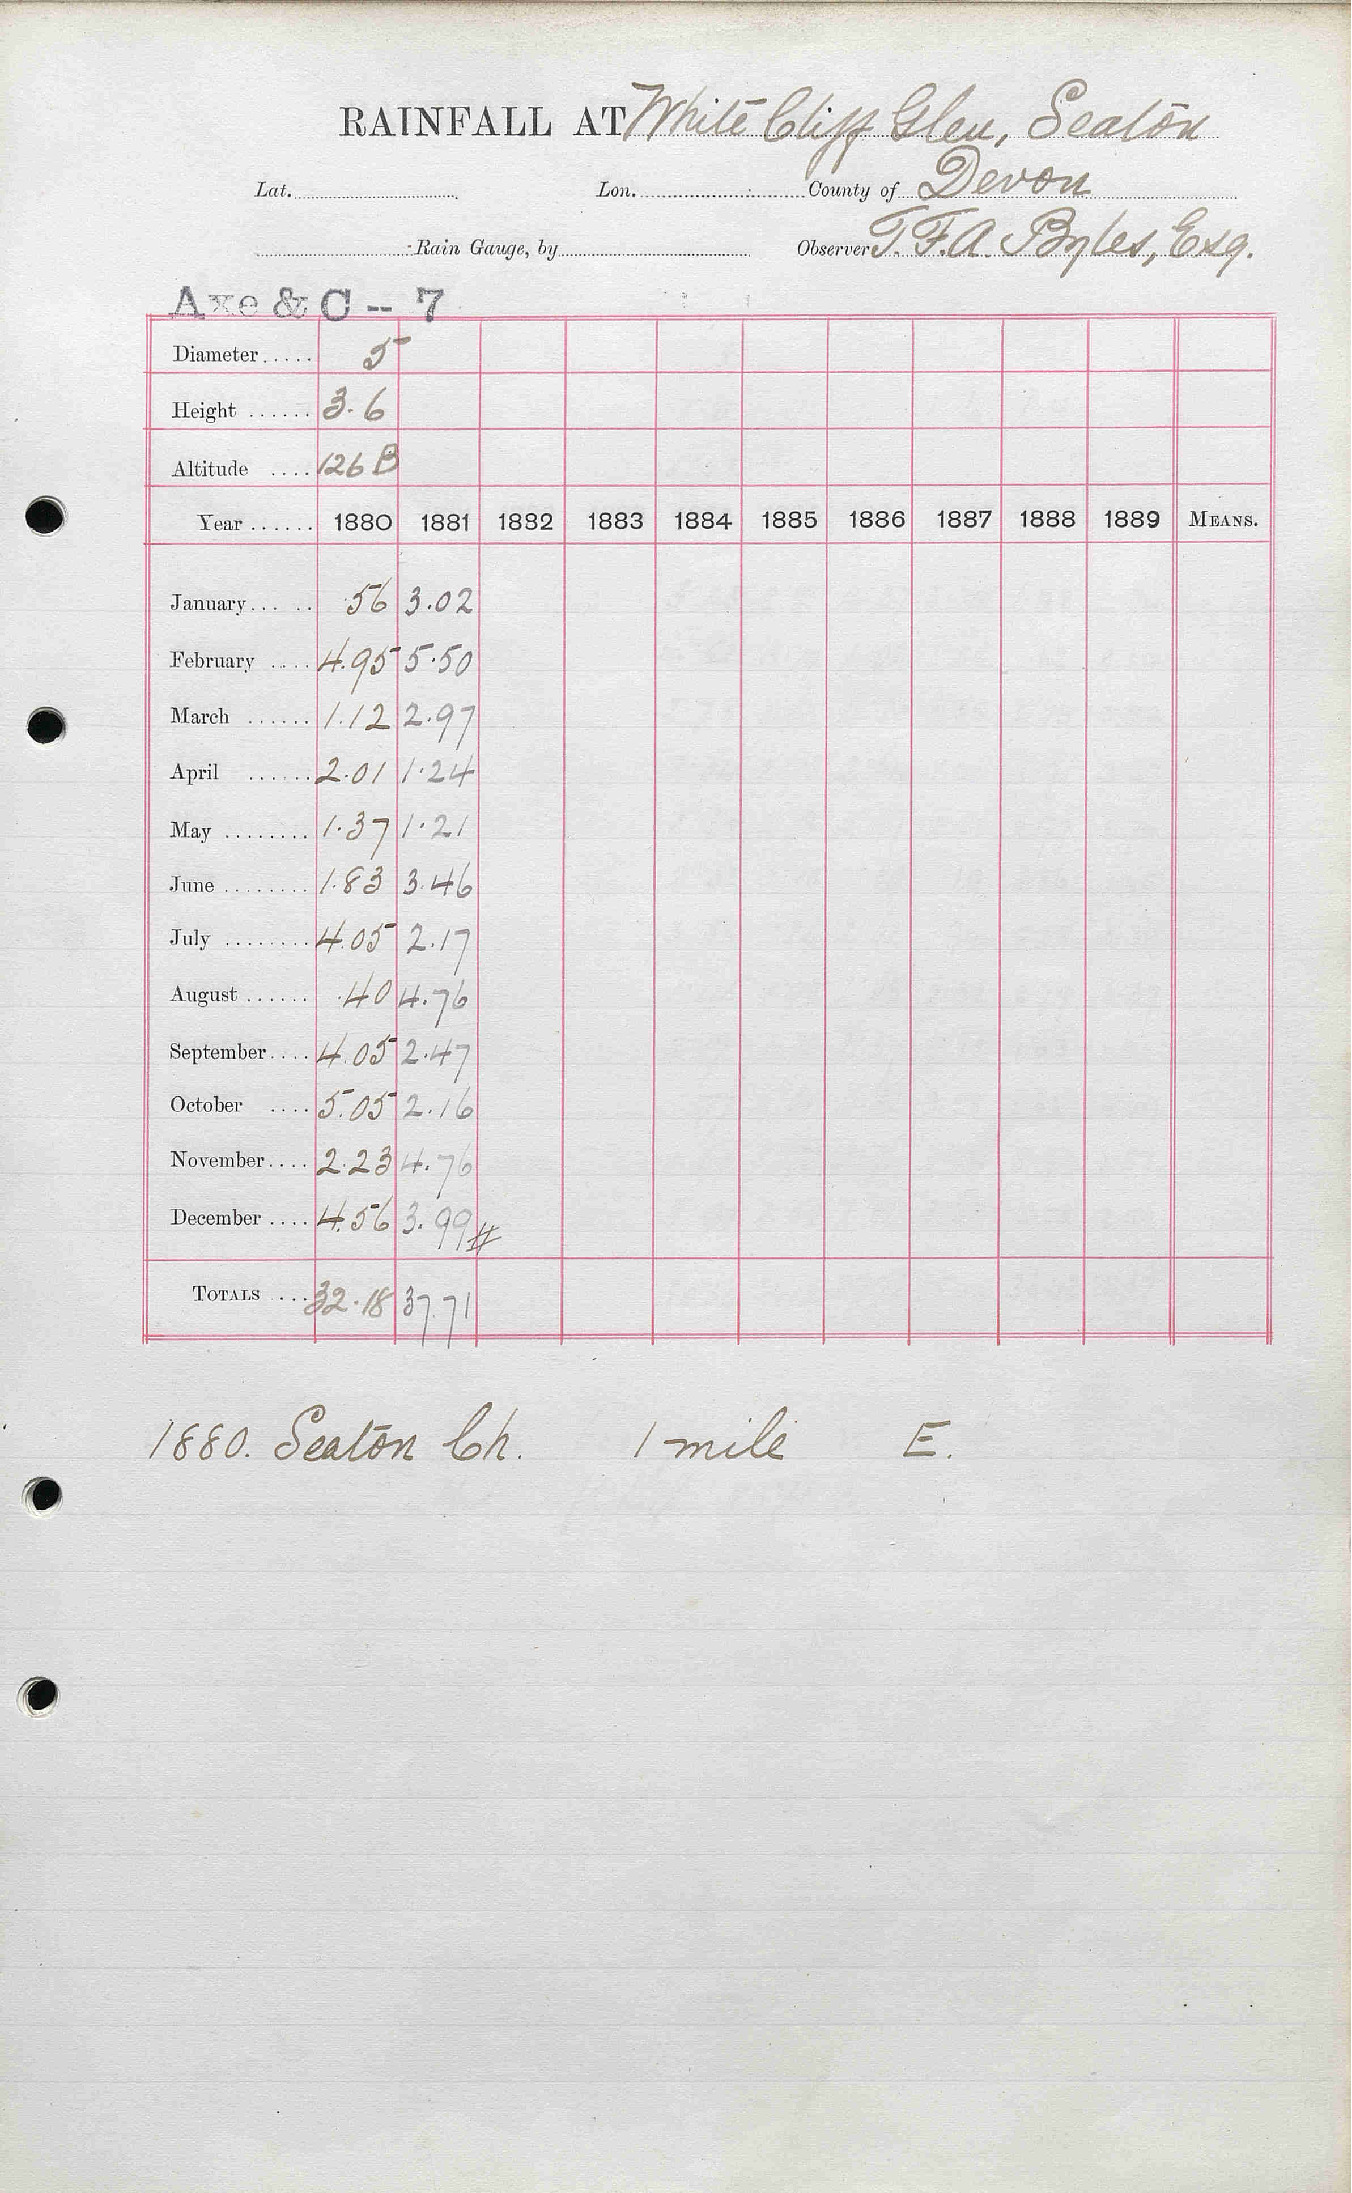 RAINFALL AT White Cliff Glen, Seaton
Lat. Lon. County of Devon
Rain Gauge, by Observer T. F. A. Byles, Esq.
Axe & C – 7
Diameter ..... 5
Height ...... 3.6
Altitude .... 126 B
Year ...... 1880 1881 1882 1883 1884 1885 1886 1887 1888 1889 MEANS.
January ..... .56 3.02
February .... 4.95 5.50
March ...... 1.12 2.97
April ...... 2.01 1.24
May ........ 1.37 1.21
June ........ 1.83 3.46
July ........ 4.05 2.17
August ...... .40 4.76
September .... 4.05 2.47
October .... 5.05 2.16
November .... 2.23 4.76
December .... 4.56 3.99 #
TOTALS .... 32.18 37.71
1880. Seaton Ch. 1 mile E.